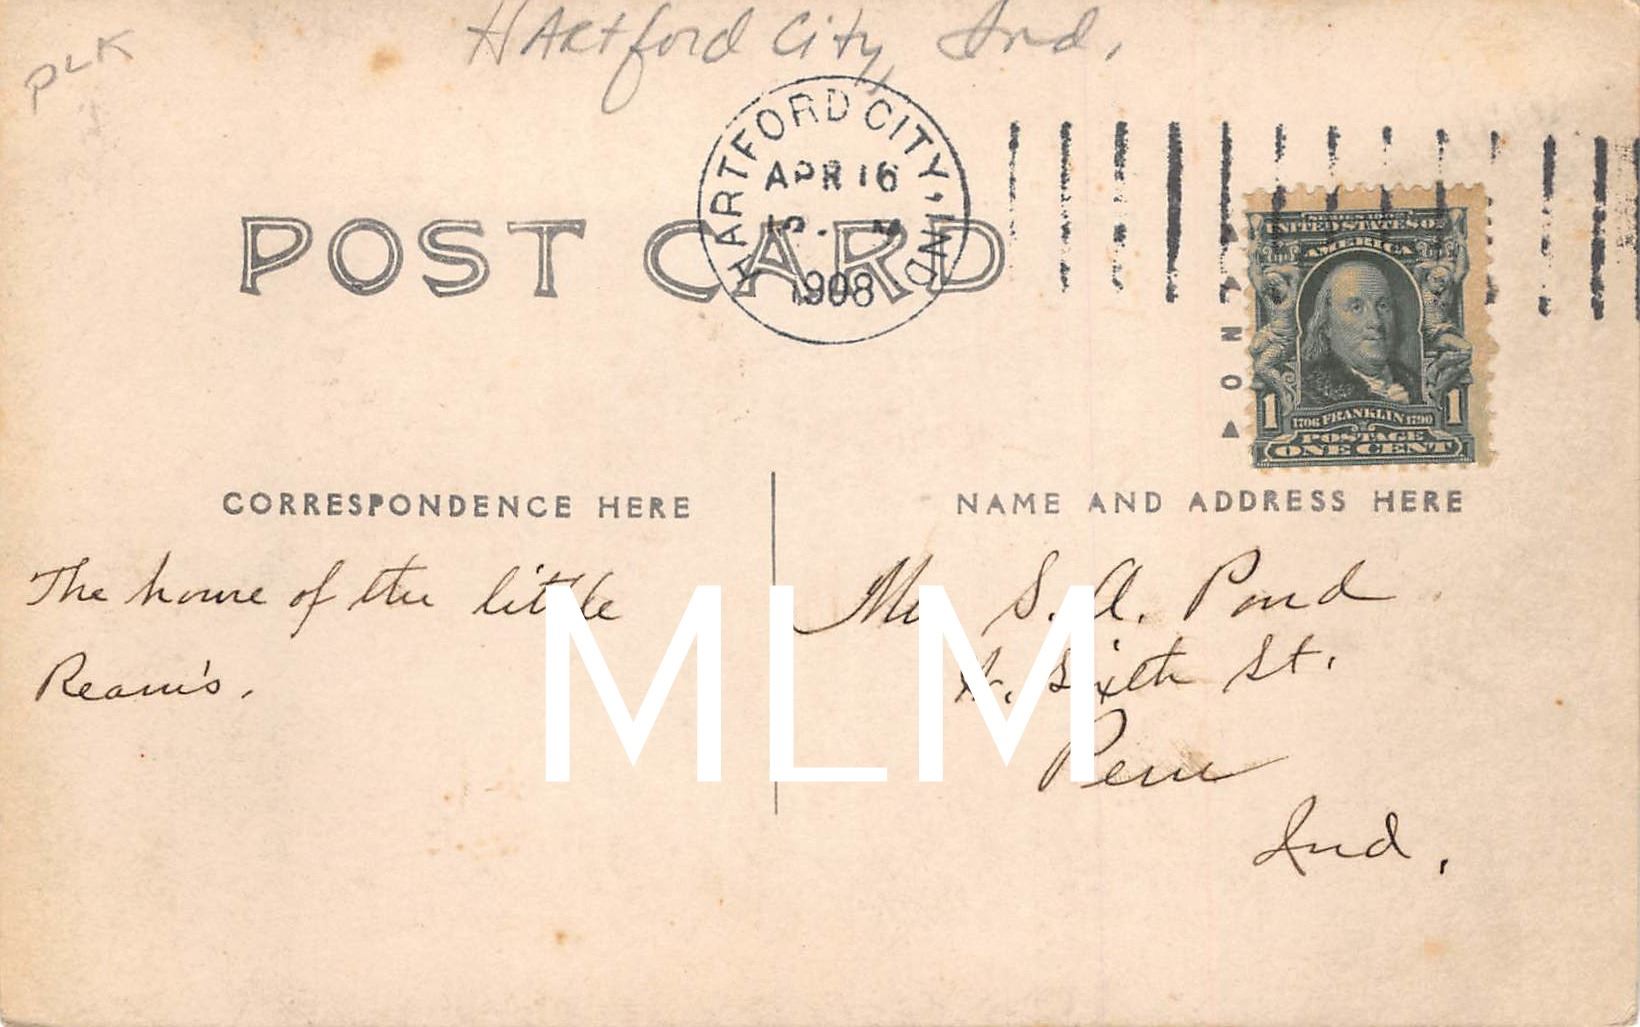 PLK
HARTford City, Ind.
HARTFORD CITY, IND
APR 16
1908
POST CARD
UNITED STATES OF
AMERICA
1 1706 FRANKLIN 1790 1
POSTAGE
ONE CENT
CORRESPONDENCE HERE
The home of the little
Ream's.
NAME AND ADDRESS HERE
S. A. Pond
Sixth St.
Peru
Ind.
MLM